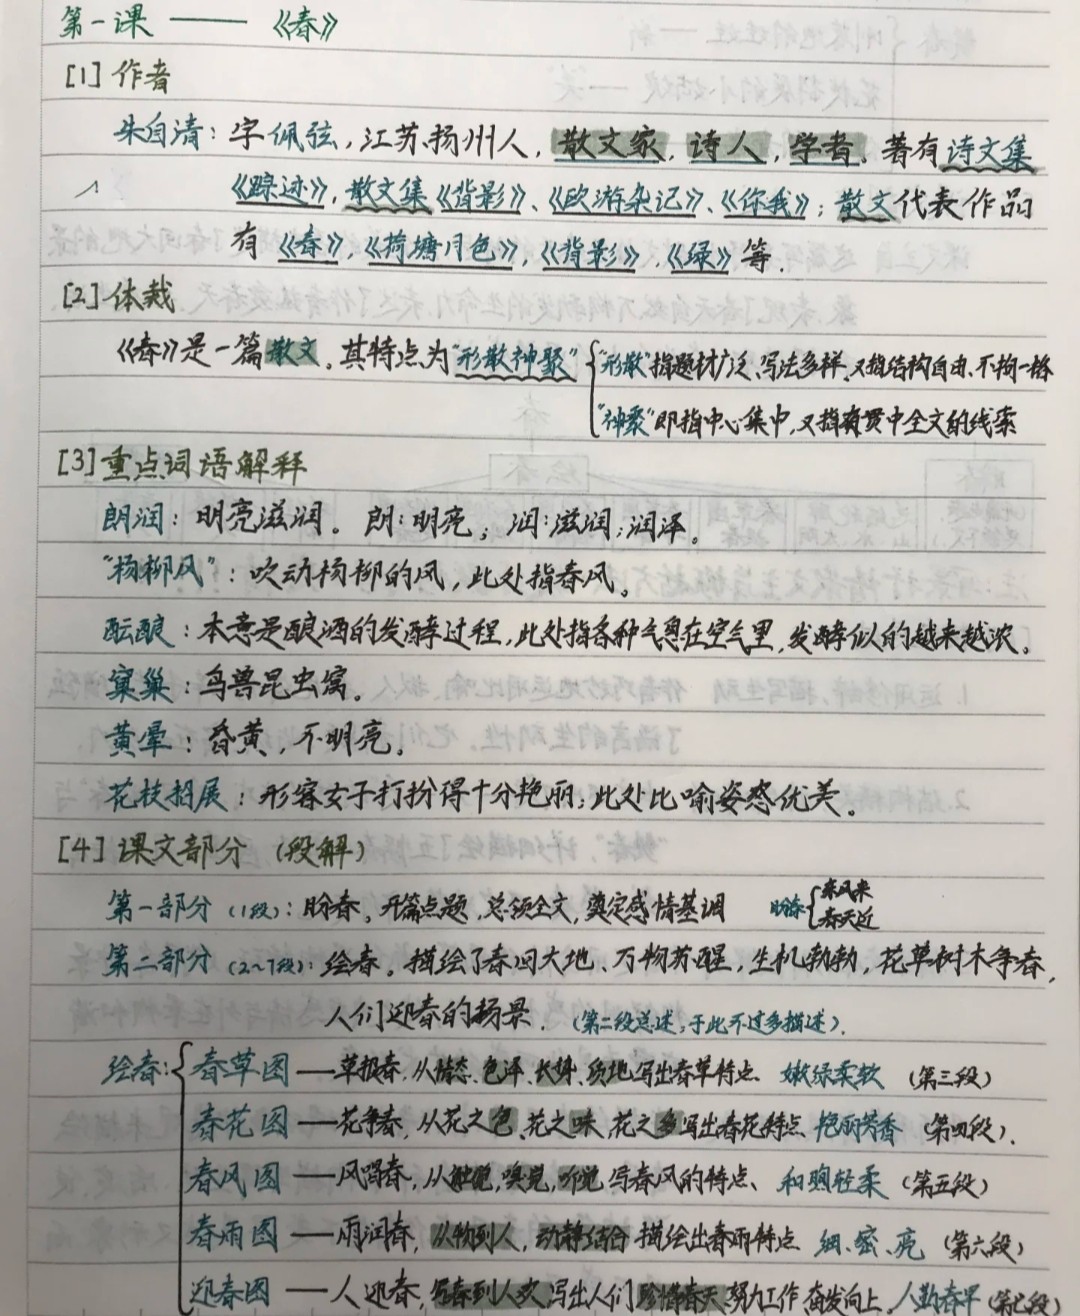 第一课 —— 《春》
[1] 作者
朱自清：字佩弦，江苏扬州人，散文家，诗人，学者。著有诗文集
《踪迹》，散文集《背影》、《欧游杂记》、《你我》；散文代表作品
有《春》，《荷塘月色》，《背影》，《绿》等.
[2] 体裁
《春》是一篇散文。其特点为"形散神聚" "形散"指题材广泛、写法多样，又指结构自由、不拘一格
"神聚"即指中心集中，又指有贯中全文的线索
[3] 重点词语解释
朗润：明亮滋润。朗：明亮；润：滋润；润泽。
"杨柳风"：吹动杨柳的风，此处指春风。
酝酿：本意是酿酒的发酵过程，此处指各种气息在空气里，发酵似的越来越浓。
窠巢：鸟兽昆虫窝。
黄晕：昏黄，不明亮。
花枝招展：形容女子打扮得十分艳丽；此处比喻姿态优美。
[4] 课文部分（段解）
第一部分（1段）：盼春。开篇点题，总领全文，奠定感情基调 盼春 东风来
春天近
第二部分（2~7段）：绘春。描绘了春回大地、万物苏醒，生机勃勃，花草树木争春，
人们迎春的场景.（第二段总述，于此不过多描述）.
绘春： 春草图 —草报春，从情态、色泽、长势、质地写出春草特点、嫩绿柔软（第三段）
春花图 —花争春，从花之色、花之味、花之多写出春花特点、艳丽芳香（第四段）.
春风图 —风唱春，从触觉，嗅觉，听觉写春风的特点、和煦轻柔（第五段）
春雨图 —雨润春，从物到人，动静结合描绘出春雨特点 细、密、亮（第六段）
迎春图 —人迎春，写春到人欢，写出人们珍惜春天、努力工作，奋发向上。人勤春早（第七段）